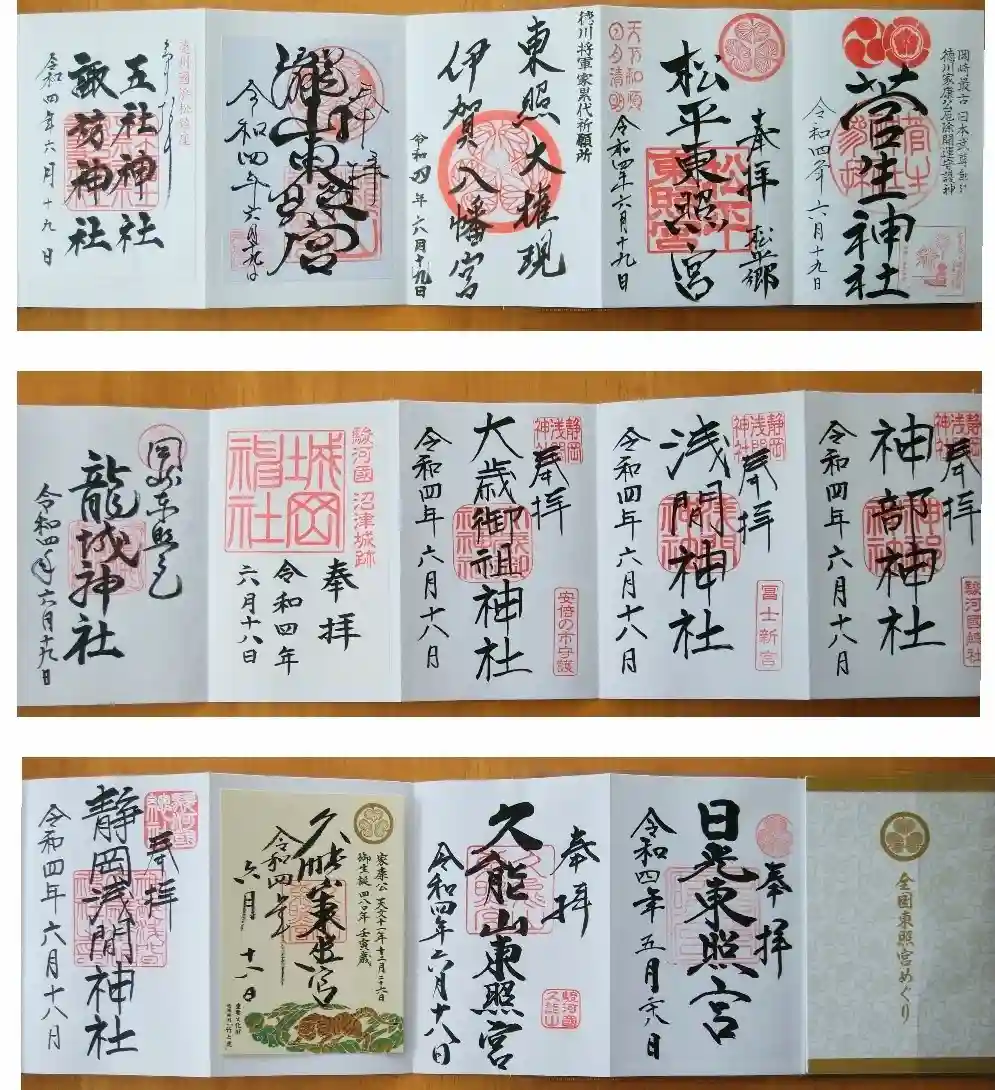 岡崎最古 日本武尊
徳川家康公厄除開運守護神
菅生神社
令和四年 六月十九日
奉拝 松平郷
松平東照宮
松平
東照宮
天下和順
日月清明
令和四年六月十九日
徳川将軍家累代祈願所
東照大権現
伊賀八幡宮
令和四年 六月十九日
奉拝
瀧山東照宮
令和四年 六月十九日
遠州國浜松鎮座
五社神社
諏訪神社
令和四年六月十九日
静岡
浅間
神社
奉拝
神部神社
駿河國総社
令和四年 六月十八日
静岡
浅間
神社
奉拝
浅間神社
冨士新宮
令和四年 六月十八日
静岡
浅間
神社
奉拝
大歳御祖神社
安倍の市守護
令和四年 六月十八日
駿河國 沼津城跡
城岡
神社
奉拝
令和四年
六月十八日
岡崎東照宮
龍城神社
令和四年六月十九日
全国東照宮めぐり
奉拝
日光東照宮
令和四年 五月二十八日
奉拝
久能山東照宮
駿河國
久能山
令和四年六月十八日
家康公 天文十一年十二月二十六日
御生誕 四八〇年 壬寅歳
久能山東照宮
令和四年
六月 十八日
奉拝
静岡浅間神社
令和四年 六月十八日